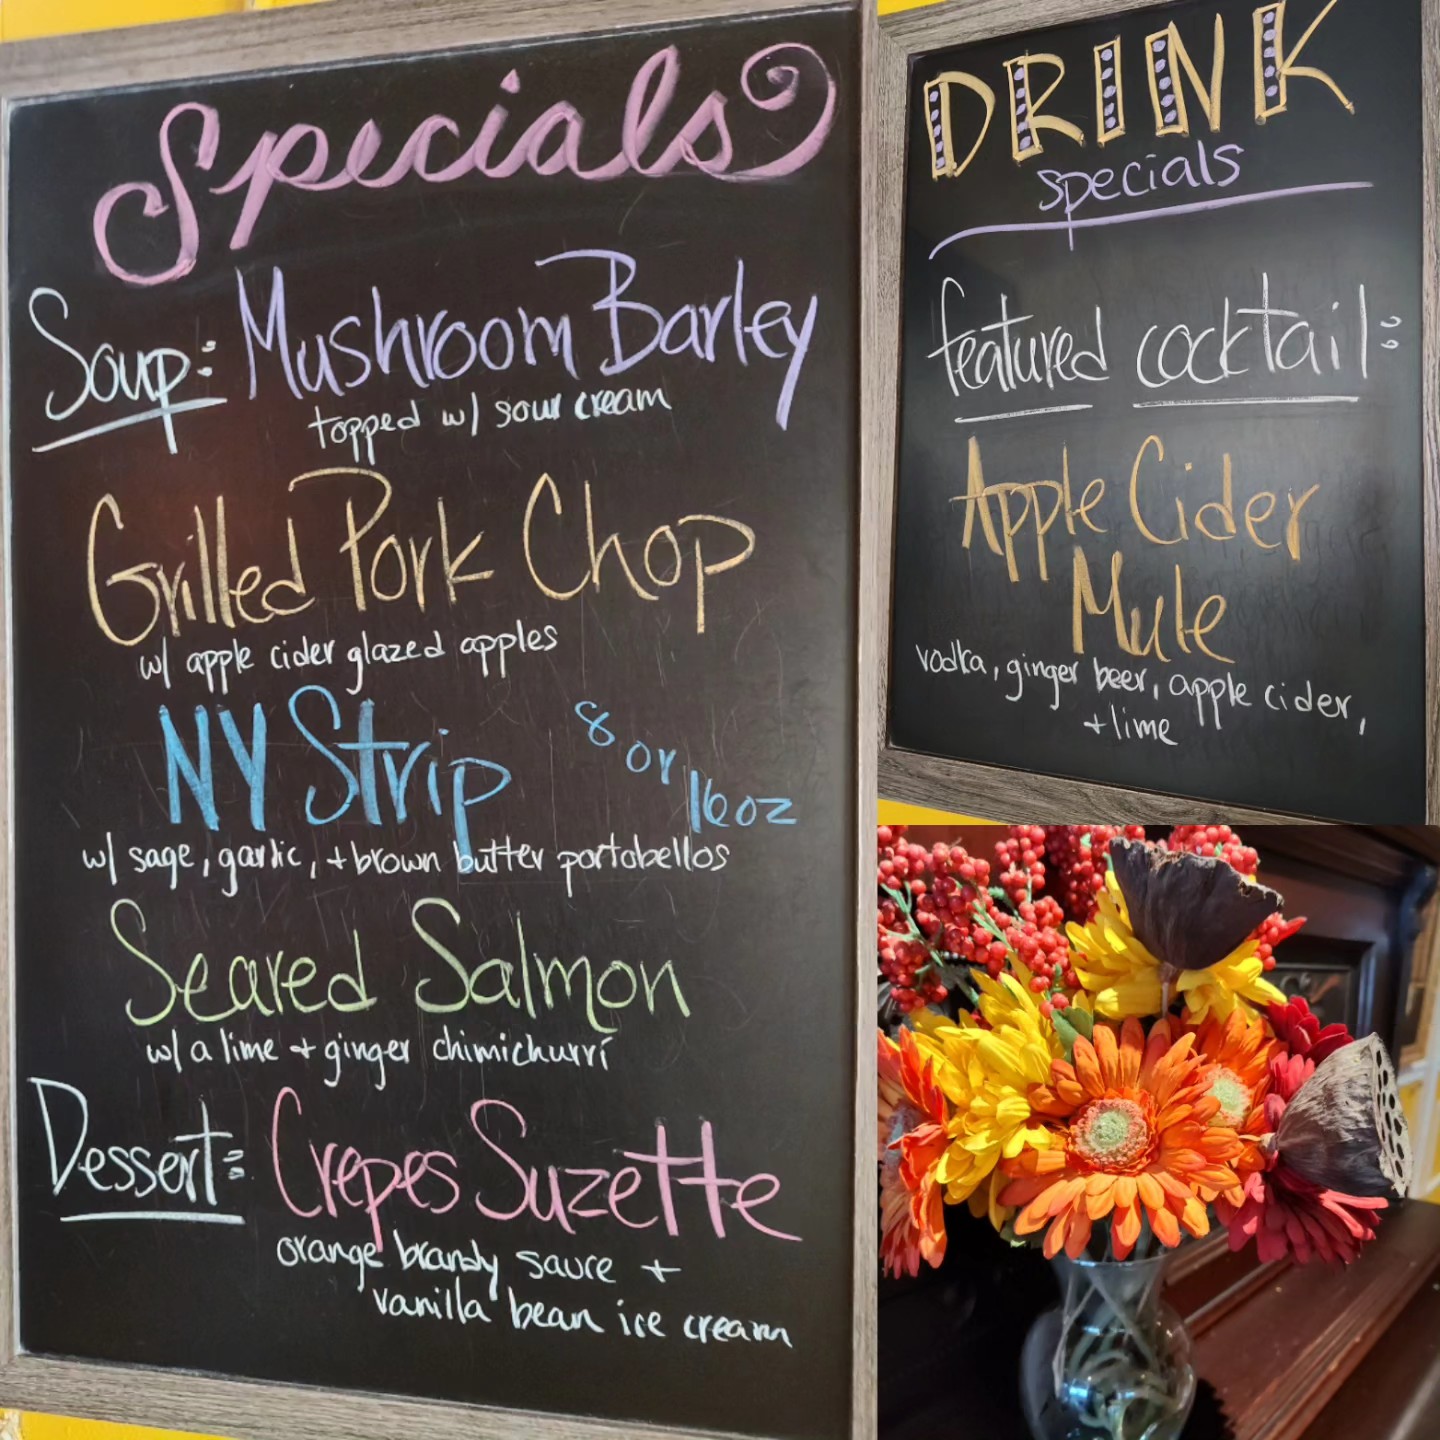 Specials
Soup: Mushroom Barley
topped w/ sour cream
Grilled Pork Chop
w/ apple cider glazed apples
NY Strip 8 or 16oz
w/ sage, garlic, + brown butter portobellos
Seared Salmon
w/ a lime + ginger chimichurri
Dessert: Crepes Suzette
orange brandy sauce +
vanilla bean ice cream
DRINK
specials
featured cocktail:
Apple Cider
Mule
vodka, ginger beer, apple cider,
+ lime